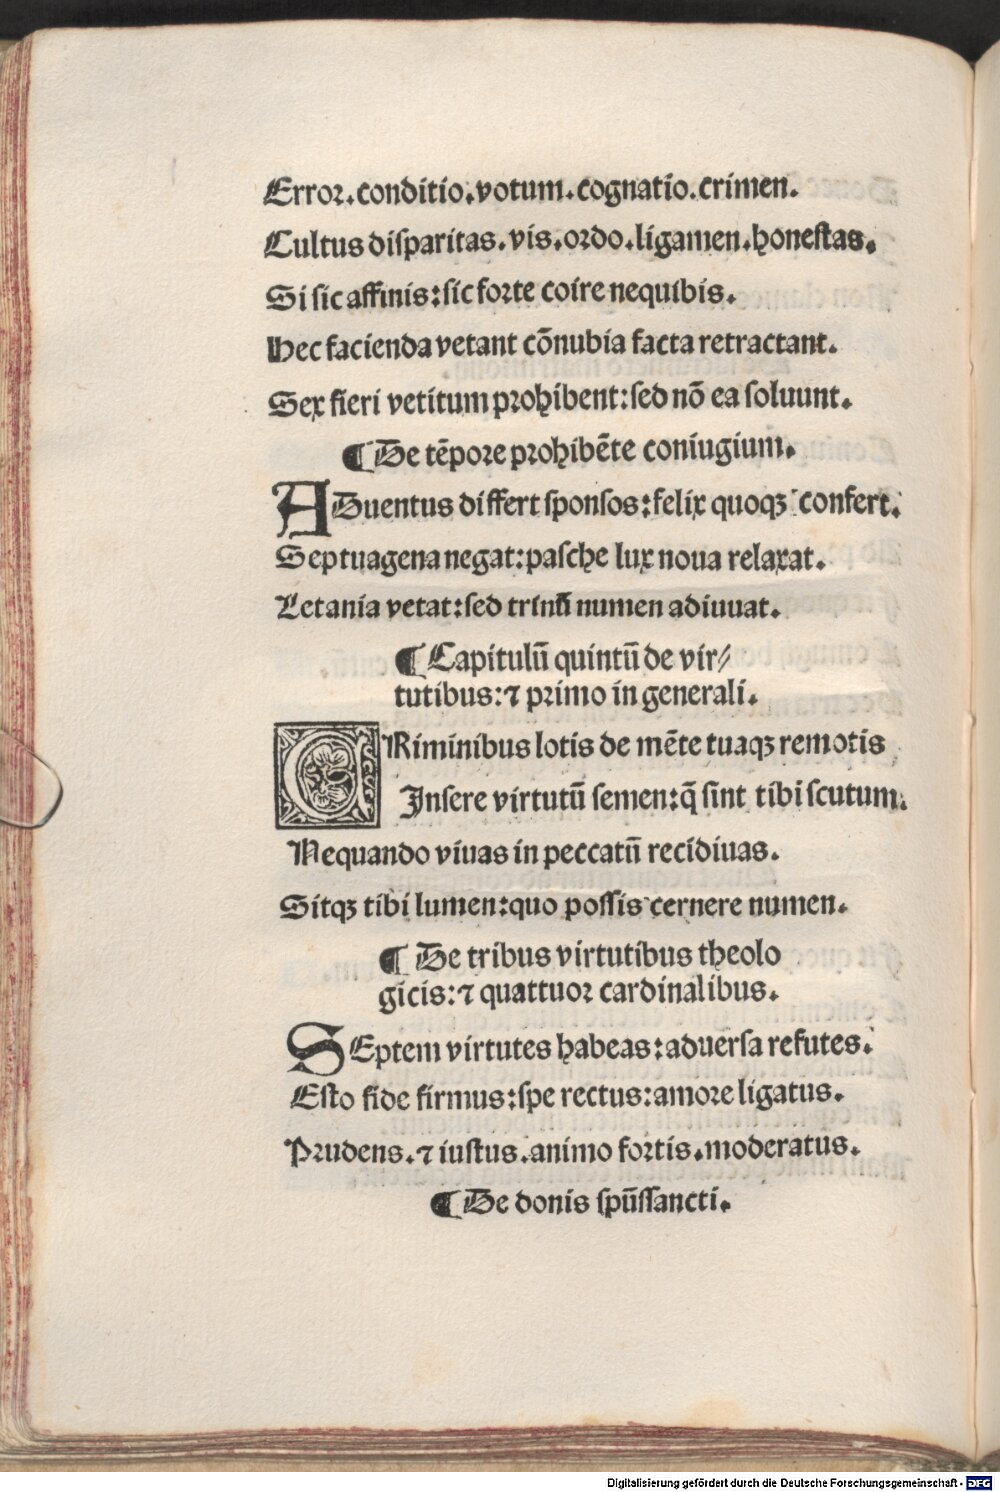 Error.conditio.votum.cognatio.crimen.
Cultus disparitas.vis.ordo.ligamen.honestas.
Si sic affinis:sic forte coire nequibis.
Hec facienda vetant cōnubia facta retractant.
Sex fieri vetitum prohibent:sed nō ea soluunt.
¶ De tēpore prohibēte coniugium.
ADuentus differt sponsos:felix quoqꝫ confert.
Septuagena negat:pasche lux noua relaxat.
Letania vetat:sed numen adiuuat.
¶ Capitulū quintū de vir⸗
tutibus:⁊ primo in generali.
CRiminibus lotis de mēte tuaqꝫ remotis
Insere virtutū semen:q̄ sint tibi scutum.
Nequando viuas in peccatū recidiuas.
Sitqꝫ tibi lumen:quo possis cernere numen.
¶ De tribus virtutibus theolo
gicis:⁊ quattuor cardinalibus.
SEptem virtutes habeas:aduersa refutes.
Esto fide firmus:spe rectus:amore ligatus.
Prudens.⁊ iustus.animo fortis.moderatus.
¶ De donis spūssancti.
Digitalisierung gefördert durch die Deutsche Forschungsgemeinschaft - DFG